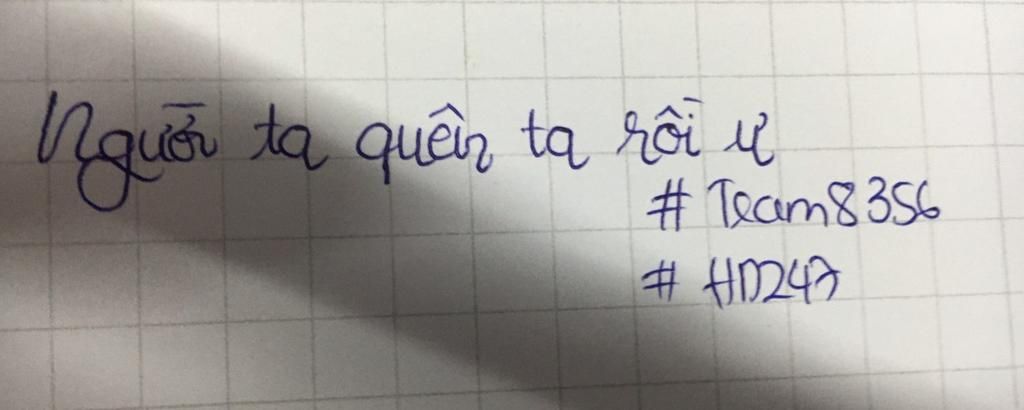 Người ta quên ta rồi ư
# Team8356
# HD247